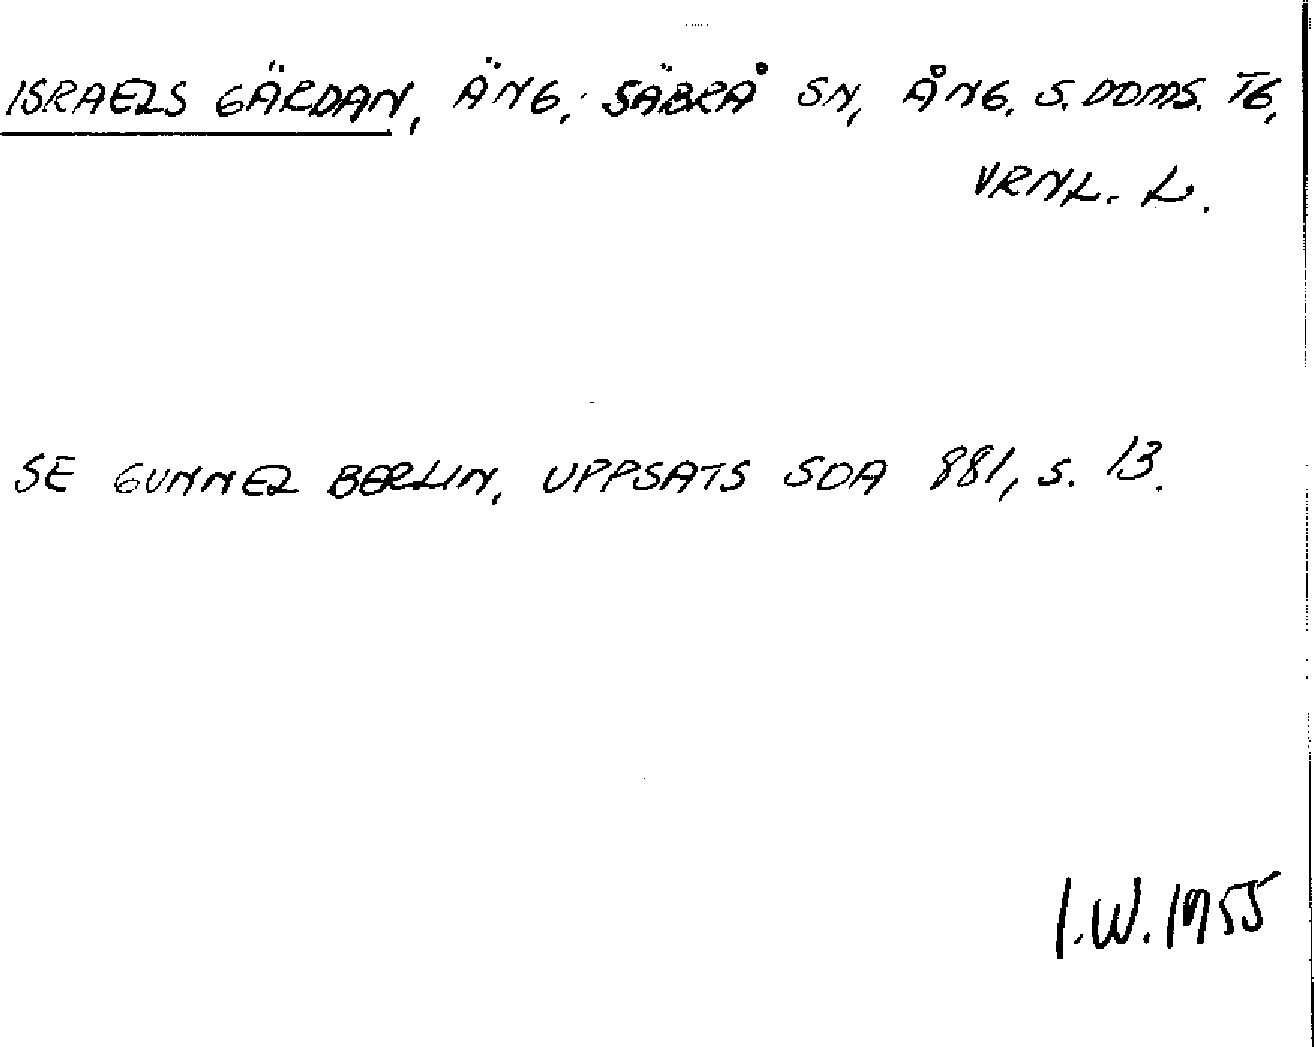 ISRAELS GÄRDAN, ÄNG, SÄBRÅ SN, ÅNG. S. DOMS. TG,
VRNL. L.
SE GUNNEL BERLIN, UPPSATS SOA 881, S. 13.
I.W. 1955